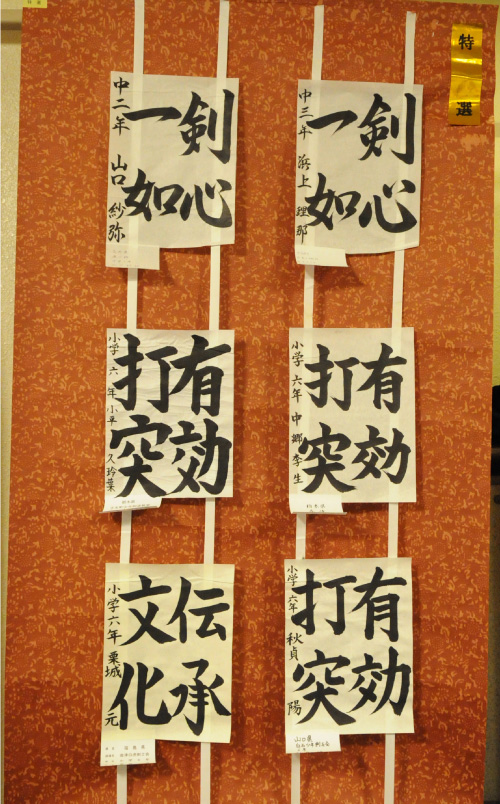 特選
剣心
一如
中三年 浜上 理那
剣心
一如
中二年 山口 紗弥
有効
打突
小学六年 中郷李生
有効
打突
小学六年 小平 久玲葉
有効
打突
小学六年 秋貞 陽
山口県
伝承
文化
小学六年 粟城 元